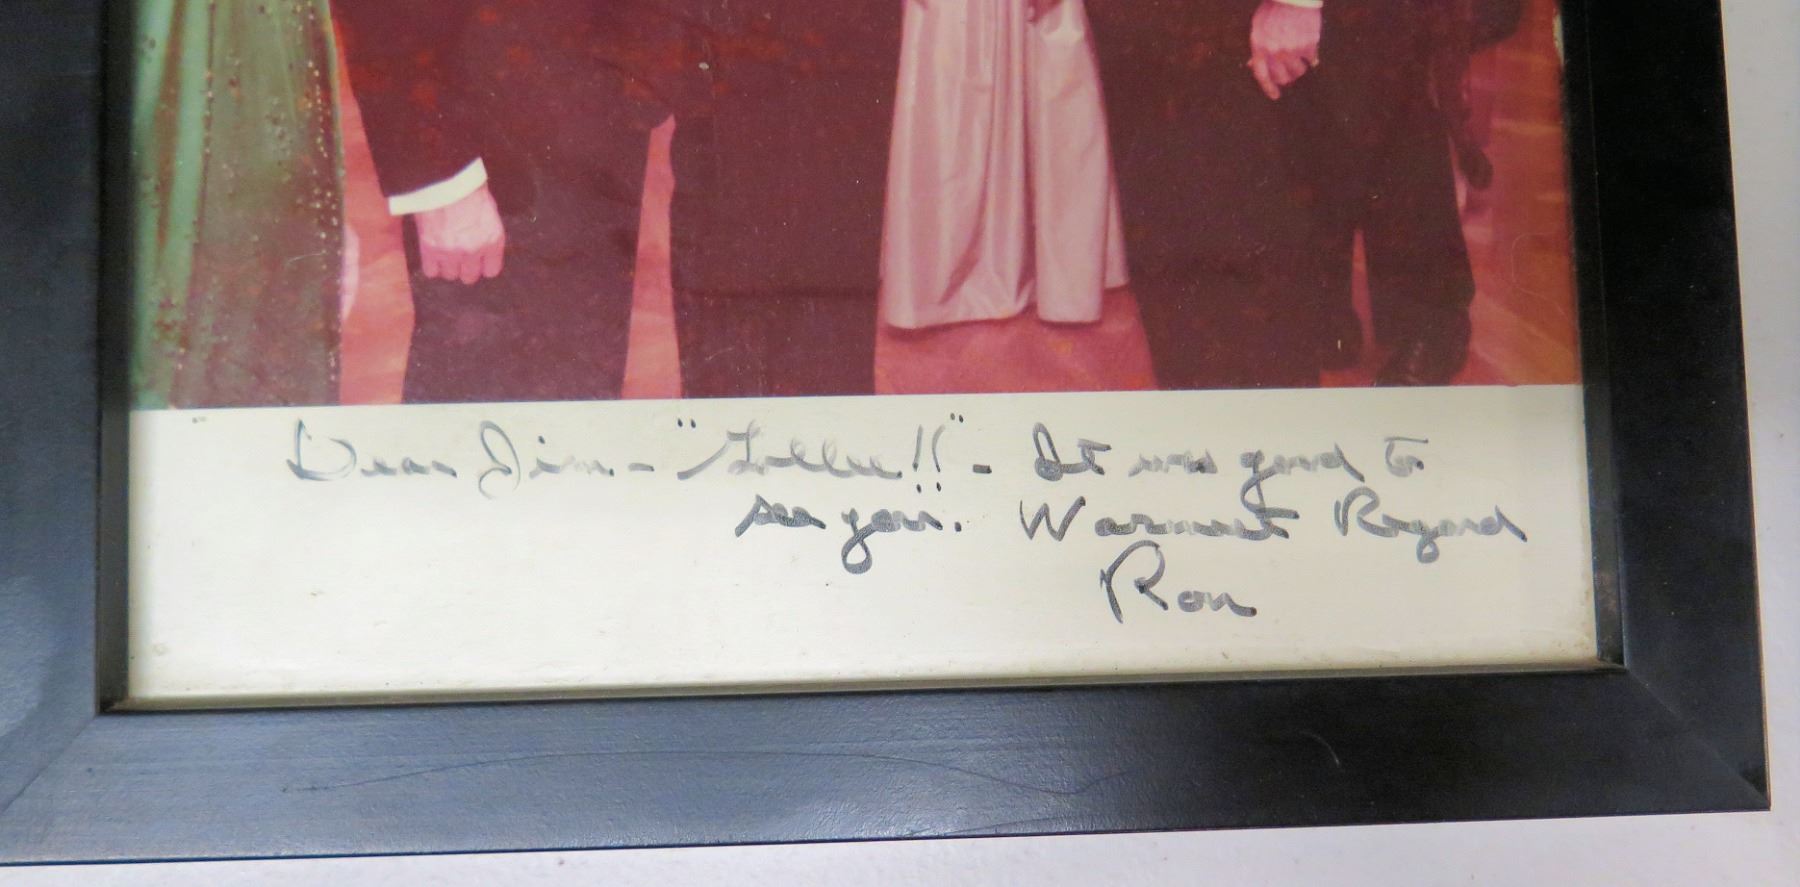 Dear Jim - "Gollee!!" - It was good to
see you. Warmest Regard
Ron